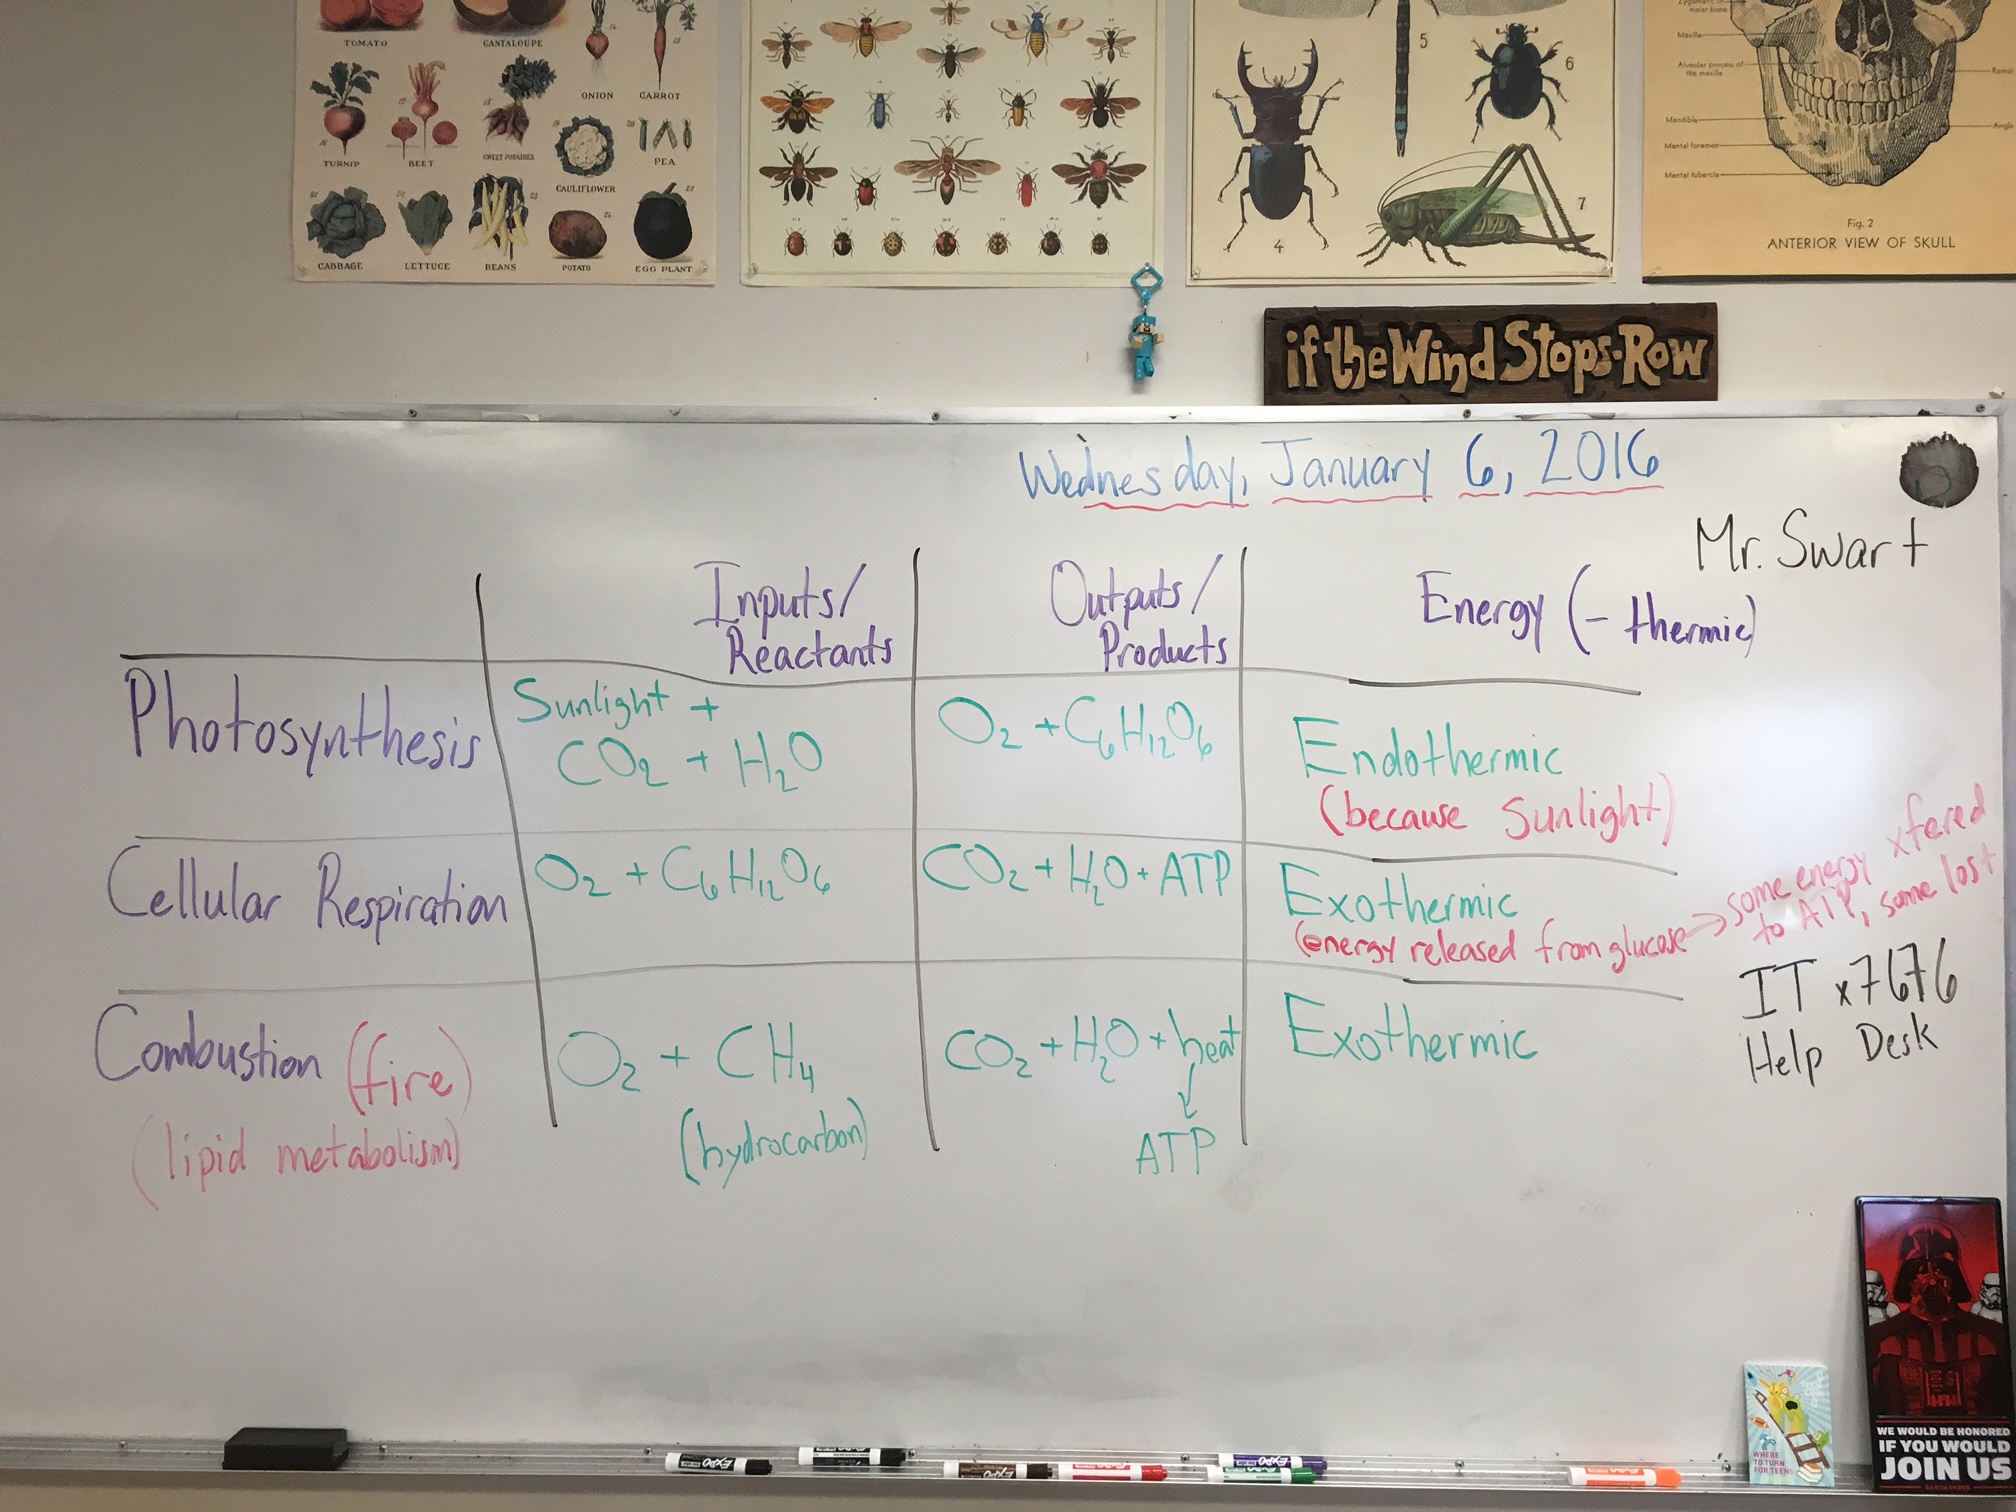 TOMATO
CANTALOUPE
ONION
CARROT
TURNIP
BEET
SWEET POTATOES
CAULIFLOWER
PEA
CABBAGE
LETTUCE
BEANS
POTATO
EGG PLANT
5
6
4
7
Maxilla
Alveolar process of
the maxilla
Mandible
Mental foramen
Mental tubercle
Angle
Fig. 2
ANTERIOR VIEW OF SKULL
if the Wind Stops-Row
Wednesday, January 6, 2016
Mr. Swart
Inputs/
Reactants
Outputs/
Products
Energy (- thermic)
Photosynthesis
Sunlight +
CO₂ + H₂O
O₂ + C₆H₁₂O₆
Endothermic
(because Sunlight)
Cellular Respiration
O₂ + C₆H₁₂O₆
CO₂ + H₂O + ATP
Exothermic
(energy released from glucose → some energy xfered
to ATP, some lost
Combustion (fire)
(lipid metabolism)
O₂ + CH₄
(hydrocarbon)
CO₂ + H₂O + heat
ATP
Exothermic
IT x7676
Help Desk
EXPO
EXPO
EXPO
EXPO
WHERE
TO TURN
FOR TEENS
WE WOULD BE HONORED
IF YOU WOULD
JOIN US